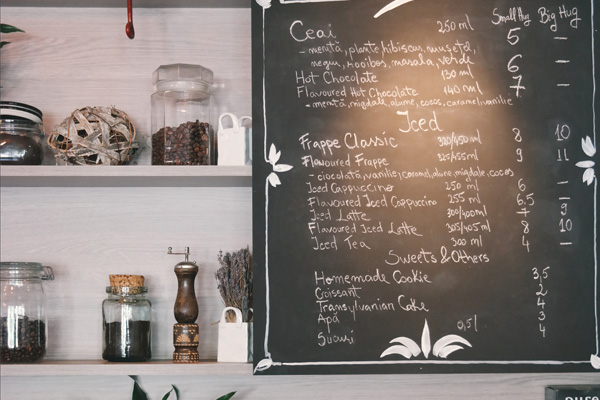 Small Hug Big Hug
Ceai 250 ml 5 —
- mentă, plante, hibiscus, mușețel,
negru, rooibos, masala, verde
Hot Chocolate 130 ml 6 —
Flavoured Hot Chocolate 140 ml 7 —
- mentă, migdale, alune, cocos, caramel, vanilie
Iced
Frappe Classic 320/450 ml 8 10
Flavoured Frappe 325/455 ml 9 11
- ciocolată, vanilie, caramel, alune, migdale, cocos
Iced Cappuccino 250 ml 6 —
Flavoured Iced Cappuccino 255 ml 6.5 —
Iced Latte 300/400ml 7 9
Flavoured Iced Latte 305/405 ml 8 10
Iced Tea 300 ml 4 —
Sweets & Others
Homemade Cookie 3,5
Croissant 2
Transylvanian Cake 4
Apă 0,5 l 3
Sucuri 4